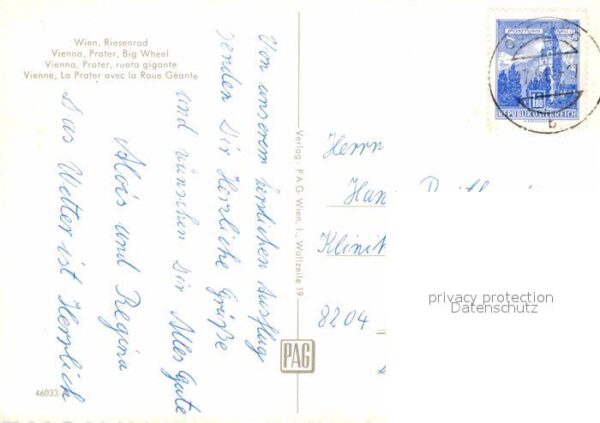 Wien, Riesenrad
Vienna, Prater, Big Wheel
Vienna, Prater, ruota gigante
Vienne, La Prater avec la Roue Géante
Von unserem herrlichen Ausflug
senden Dir Herzliche Grüße
und wünschen Dir Alles Gute
Alois und Regina
Das Wetter ist Herrlich
46033
Verlag: PAG Wien, I., Wollzeile 19
PAG
REPUBLIK ÖSTERREICH
b
Herrn
Han
Klinik
8204
privacy protection
Datenschutz